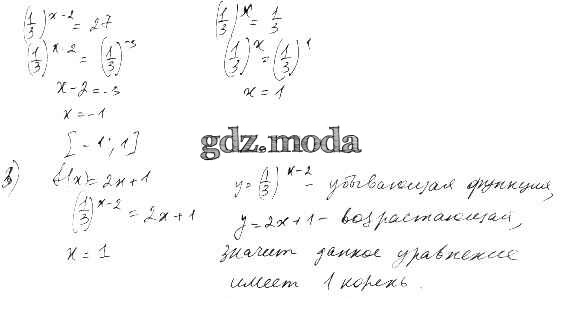 (1/3)^(x-2) = 27
(1/3)^(x-2) = (1/3)^(-3)
x-2 = -3
x = -1
(1/3)^x = 1/3
(1/3)^x = (1/3)^1
x = 1
[-1; 1]
gdz.moda
3) f(x) = 2x+1
(1/3)^(x-2) = 2x+1
x = 1
y = (1/3)^(x-2) - убывающая функция,
y = 2x+1 - возрастающая,
значит данное уравнение
имеет 1 корень.